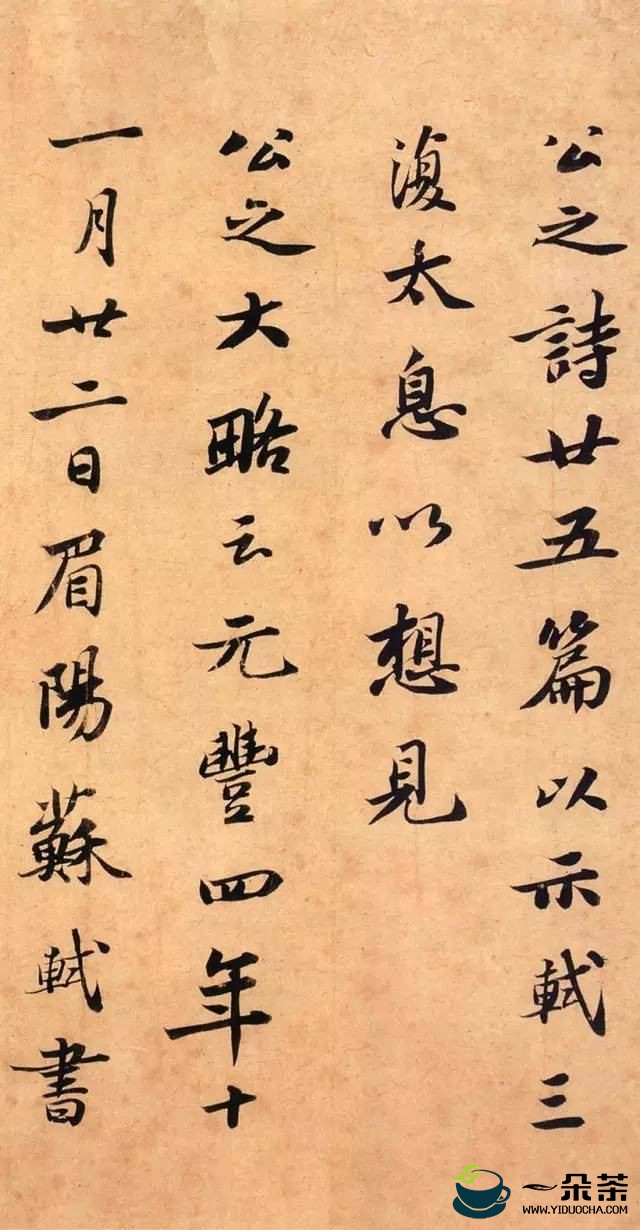 公之詩廿五篇以示軾三
復太息以想見
公之大略云元豐四年十
一月廿二日眉陽蘇軾書
一朵茶
WWW.YIDUOCHA.COM